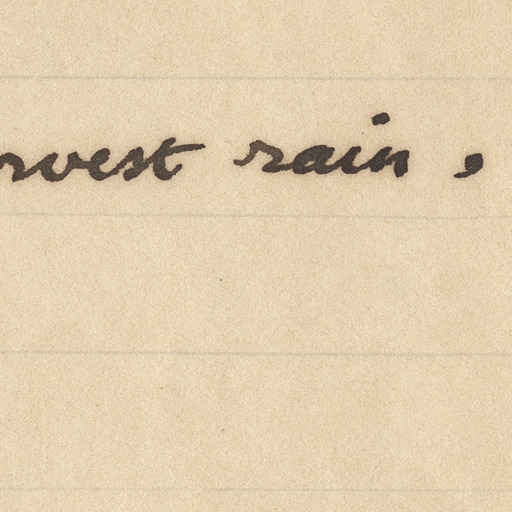 rvest rain ,